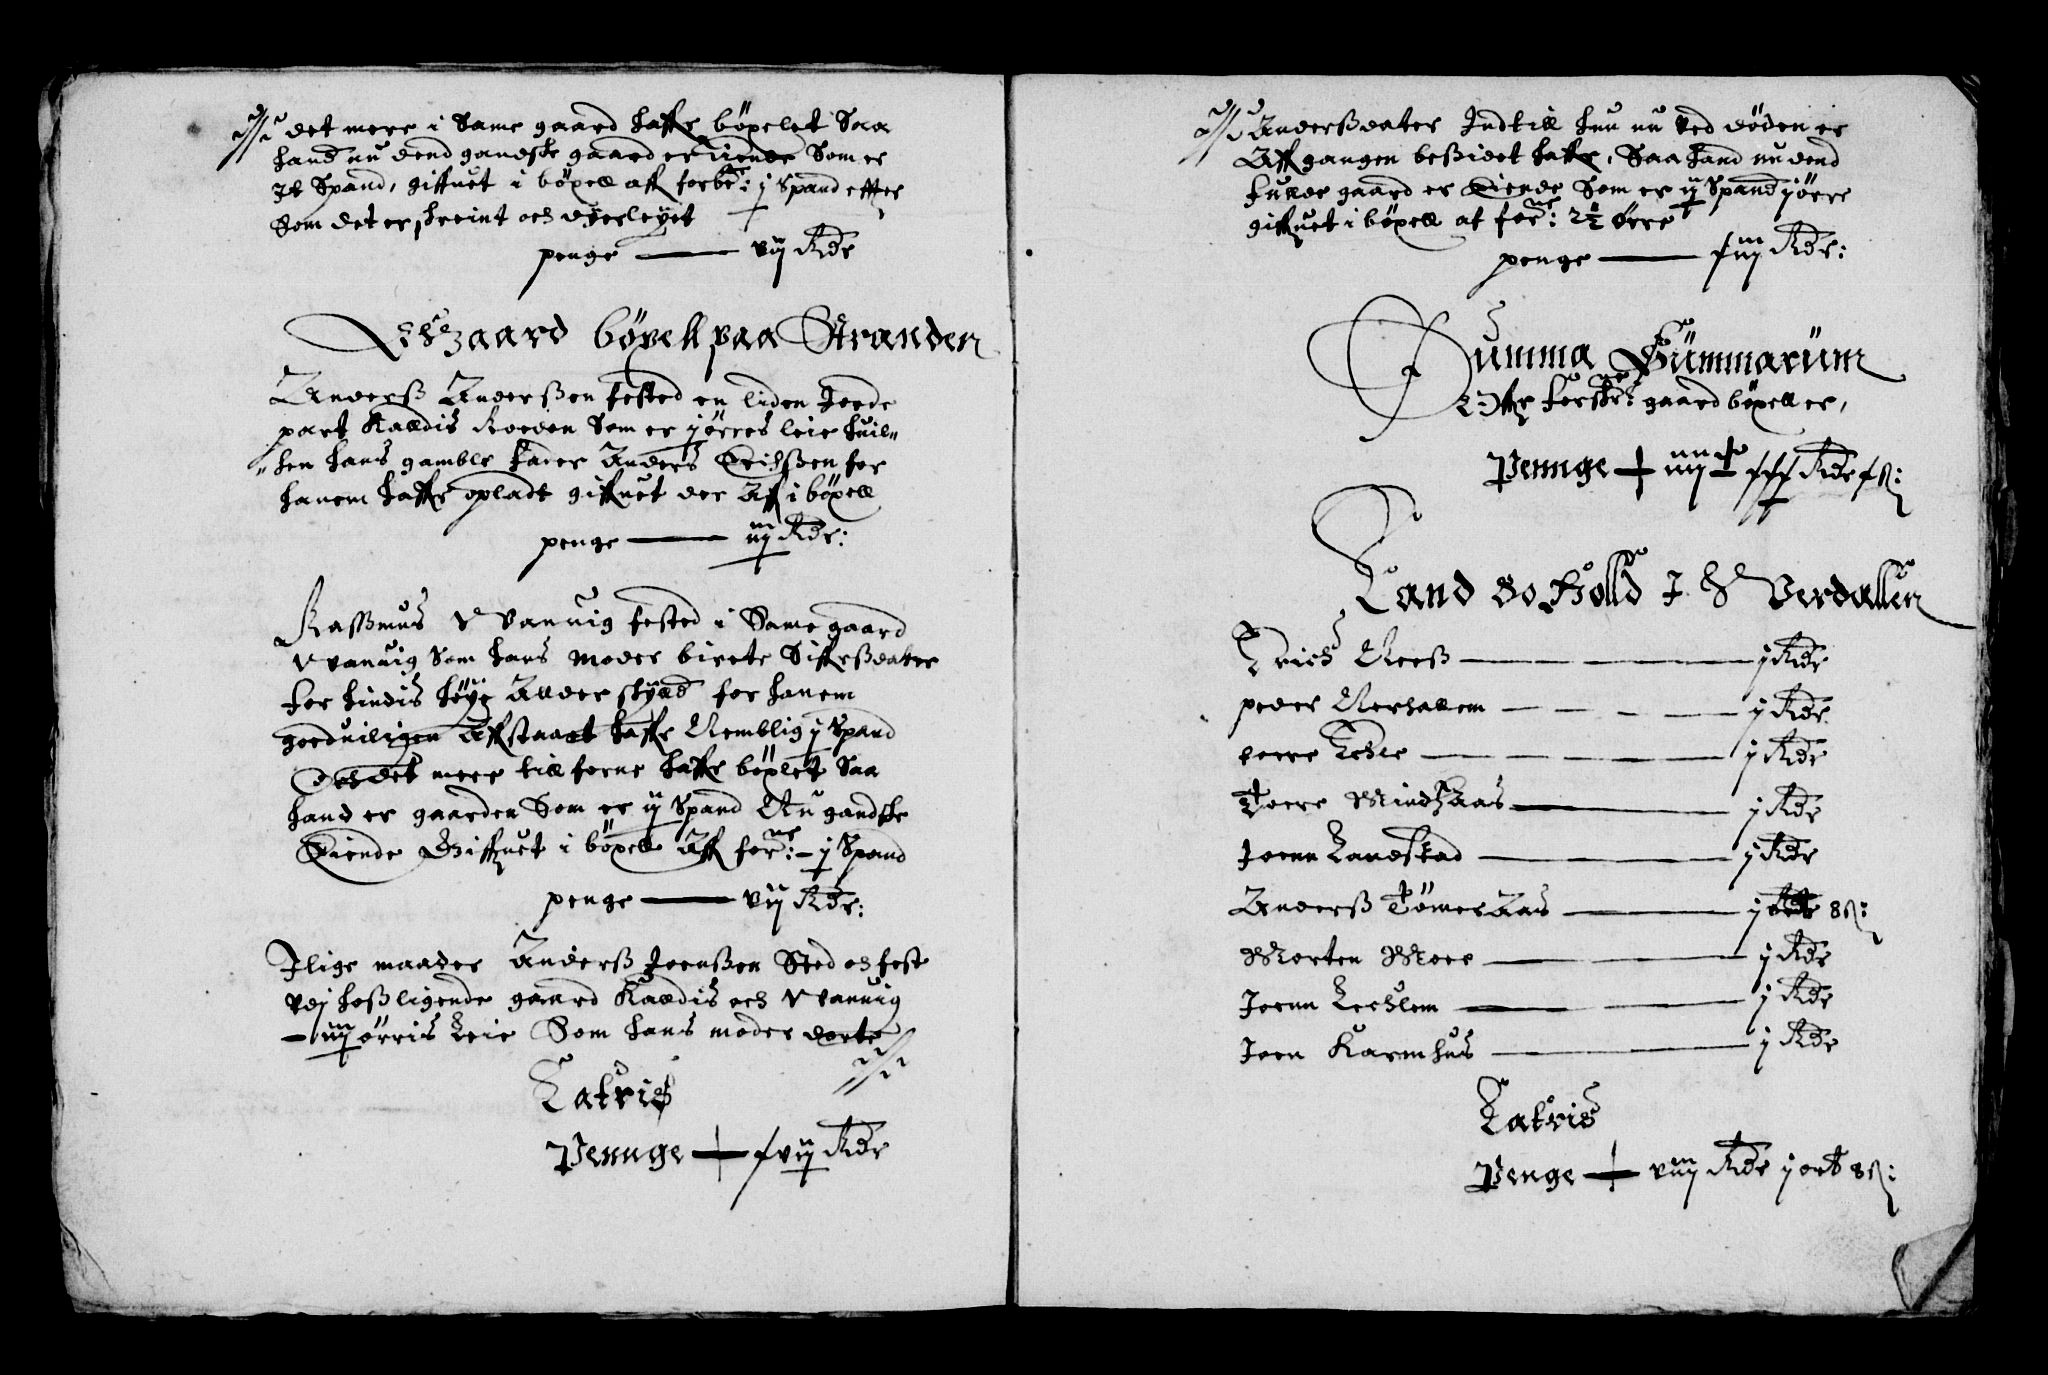 det mere i Same gaard haffr böxelet Saa
hand nu dend gandske gaard er Eiende Som er
Jt Spand, giffuet i böxell aff forbe: j Spand effter
Som det er skreint och offuerleyet
penge — vij Rdr
Gaard böxell paa Stranden
Anderß Anderßen fested en liden Jorde
part Kaldis Roeden Som er j örres leie huil„
„chen hans gamble Fader Anders Erichßen for
hanem haffr opladt giffuet der Aff i böxell
penge — iiij Rdr:
Rasßmus Vvanuig fested i Same gaard
Vvanuig Som hans Moder birete Siffrßdater
for hindis höye Allderskyld for hanem
goeduiligen Affstaaet haffr Nemblig j Spand
Och det mere till forne haffr böxlet Saa
hand er gaarden Som er ij Spand Nu gandske
Eiende Giffuet i böxell Aff forne: – j Spand
penge — vij Rdr:
Jlige maader Anderß Joenßen Sted och fest
vdj hoßligende gaard Kaldis och Vvanuig
– iiij örris Leie Som hans moder dorte
Latris
Pennge — xvij Rdr
Anderßdater Indtill hun nu ved döden er
Aff gangen beßidet haffr, Saa hand nu dend
fulde gaard er Eiende Som er ij Spand j örre
giffuet i böxell af forne: 2½ örre
penge — xiiij Rdr:
Summa Summarum
Offr forskrne: gaard böxell er,
Pennge — iiij C xxx Rdr x ß:
Land Bo Holld I Verdallen
Erich Neeß — j Rdr
peder Nerhallem — j Rdr
poere — j Rdr
Toere Mindhaas — j Rdr
Joenn Landstad — j Rdr
Anderß Tömeraas — j ort 8 ß:
Morten Moee — j Rdr
Joenn Leehlem — j Rdr
Joen Karmhus — j Rdr
Latris
Penge — viij Rdr j ort 8 ß: